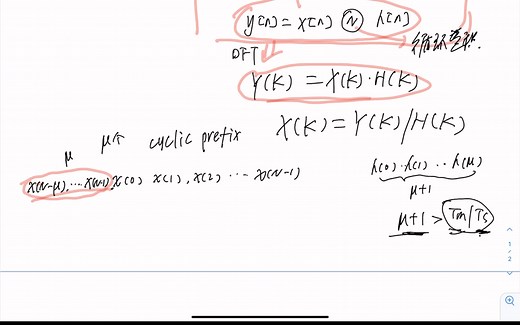 y[n] = x[n] Ⓝ h[n]
循环卷积.
DFT
Y(K) = X(K)·H(K)
μ μ个 cyclic prefix X(K) = Y(K)/H(K)
x(N-μ),...x(N-1), x(0) x(1), x(2) ... x(N-1)
h(0)·h(1)··h(μ)
μ+1
μ+1 > Tm/Ts
1
2